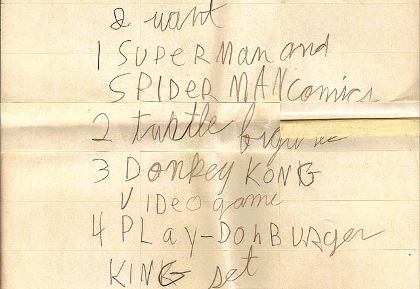 I want
1 SUPERMan and
SPIDER MAN comics
2 turtle figures
3 Donkey KONG
VIDeo game
4 PLay-DOh BURger
KING set